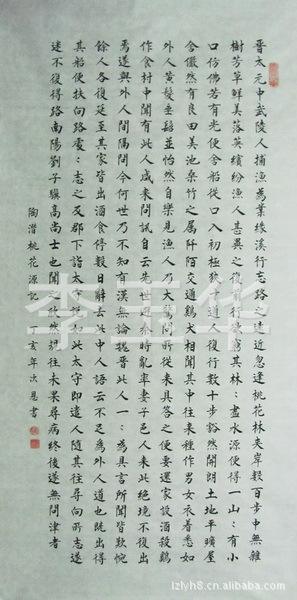 晉太元中武陵人捕漁為業緣溪行忘路之遠近忽逢桃花林夾岸數百步中無雜
樹芳草鮮美落英繽紛漁人甚異之復前行欲窮其林:盡水源便得一山:有小
口仿佛若有光便舍船從口入初極狹才通人復行數十步豁然開朗土地平曠屋
舍儼然有良田美池桑竹之屬阡陌交通鷄犬相聞其中往來種作男女衣着悉如
外人黃髮垂髫並怡然自樂見漁人乃大驚問所從來具答之便要還家設酒殺鷄
作食村中聞有此人咸来問訊自云先世避秦時亂率妻子邑人来此絕境不復出
焉遂與外人間隔問今何世乃不知有漢無論魏晉此人一:為具言所聞皆歎惋
餘人各復延至其家皆出酒食停數日辭去此中人語云不足為外人道也既出得
其船便扶向路處:志之及郡下詣太守說如此太守即遣人隨其往尋向所志遂
迷不復得路南陽劉子驥高尚士也聞之欣然規往未果尋病終後遂無問津者
陶潛桃花源記 丁亥年次恩書
李三华
lzlyh8.cn.alibaba.com